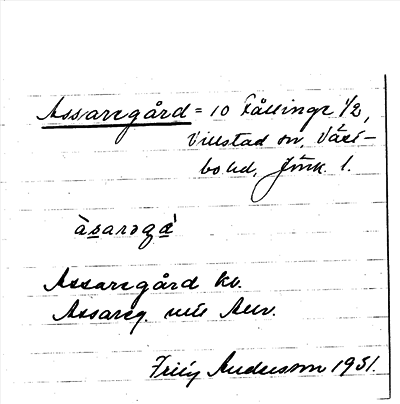 Assaregård = 10 Fållinge 1/2,
Villstad sn, Väst-
bo hd, Jönk. l.
àsarəgá
Assaregård kv.
Assareg. utt. Anv.
Andersson 1951.